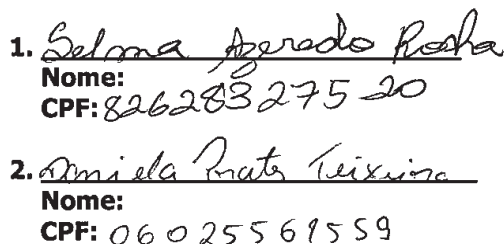 1. Selma Azeredo Rosha
Nome:
CPF: 82628327520
2. Daniela Prates Teixeira
Nome:
CPF: 06025561559